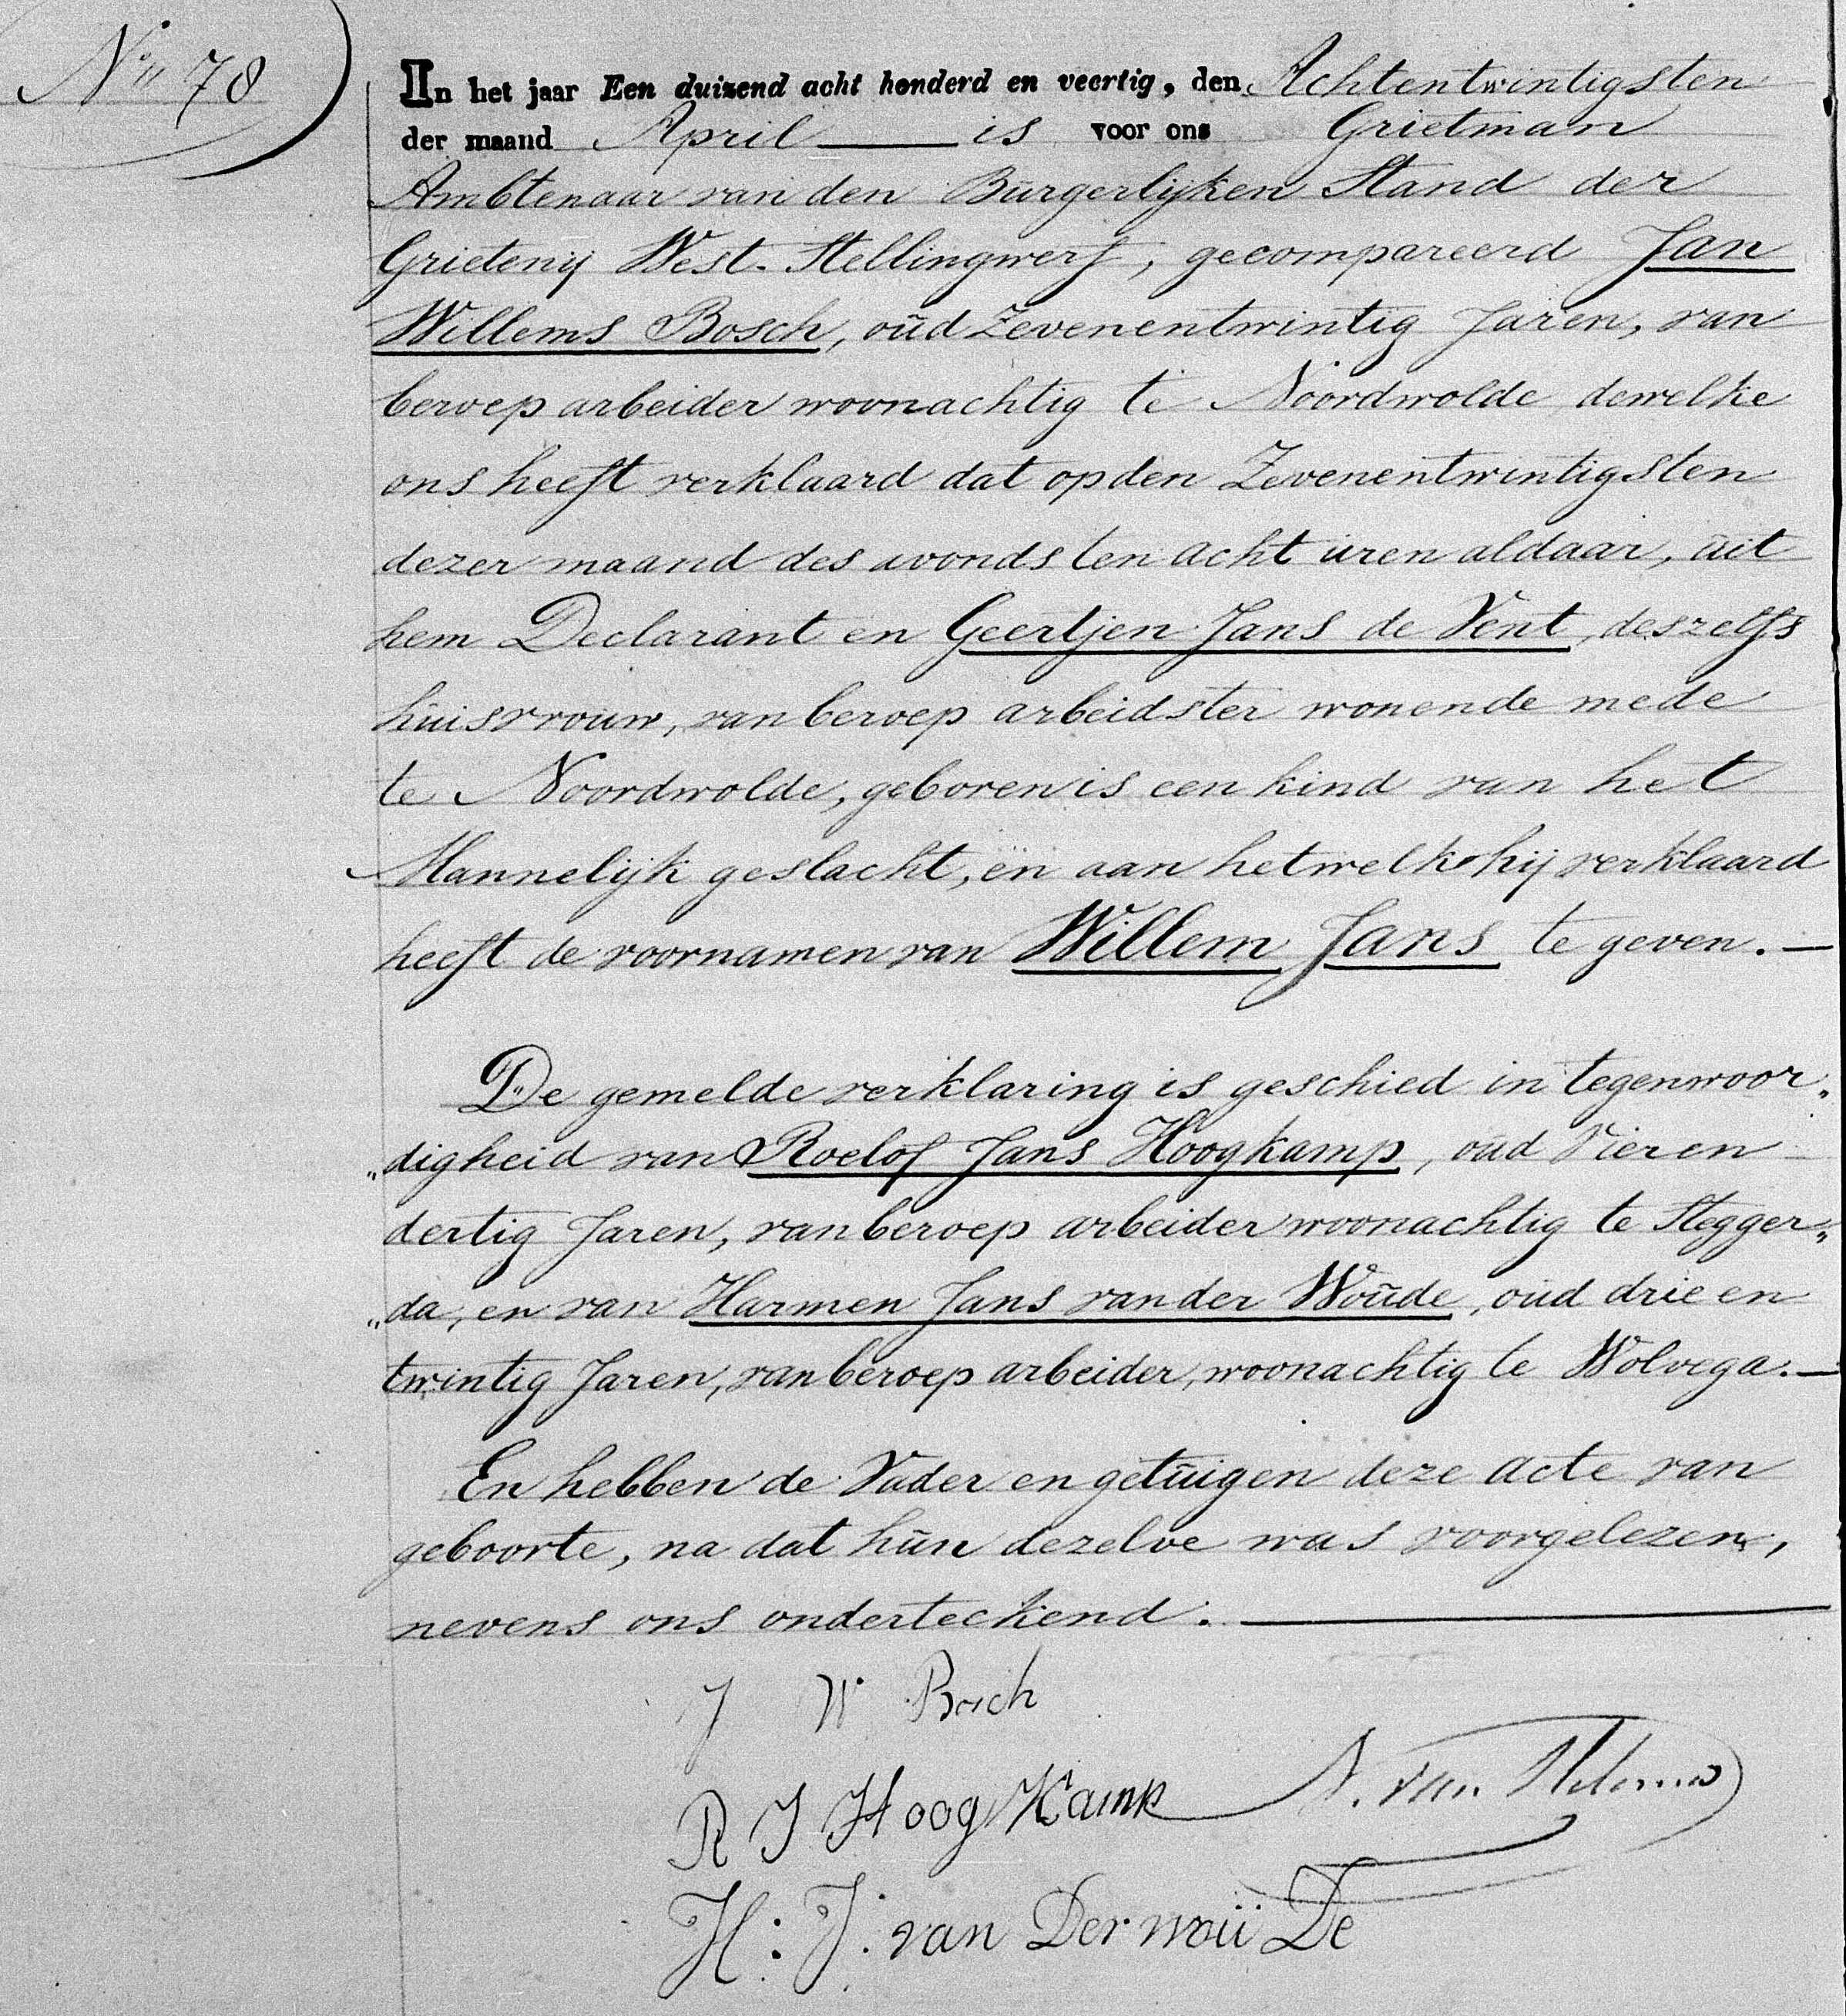 No 78
In het jaar Een duizend acht honderd en veertig, den Achtentwintigsten
der maand April is voor ons Grietman
Ambtenaar van den Burgerlijken Stand der
Grietenij West-Stellingwerf, gecompareerd Jan
Willems Bosch, oud Zevenentwintig Jaren, van
beroep arbeider woonachtig te Noordwolde dewelke
ons heeft verklaard dat op den Zevenentwintigsten
dezer maand des avonds ten acht uren aldaar, uit
hem Declarant en Geertjen Jans de Vent, deszelfs
huisvrouw, van beroep arbeidster wonende mede
te Noordwolde, geboren is een kind van het
Mannelijk geslacht, en aan hetwelk hij verklaard
heeft de voornamen van Willem Jans te geven. —
De gemelde verklaring is geschied in tegenwoor„
„digheid van Roelof Jans Hoogkamp, oud Vier en
dertig Jaren, van beroep arbeider woonachtig te Stegger„
„da, en van Harmen Jans van der Woude, oud drie en
twintig Jaren, van beroep arbeider, woonachtig te Wolvega. —
En hebben de Vader en getuigen deze acte van
geboorte, na dat hun dezelve was voorgelezen,
nevens ons onderteekend.
J W Bosch
R J Hoog Kamp N. van
H: J: van Der woü De